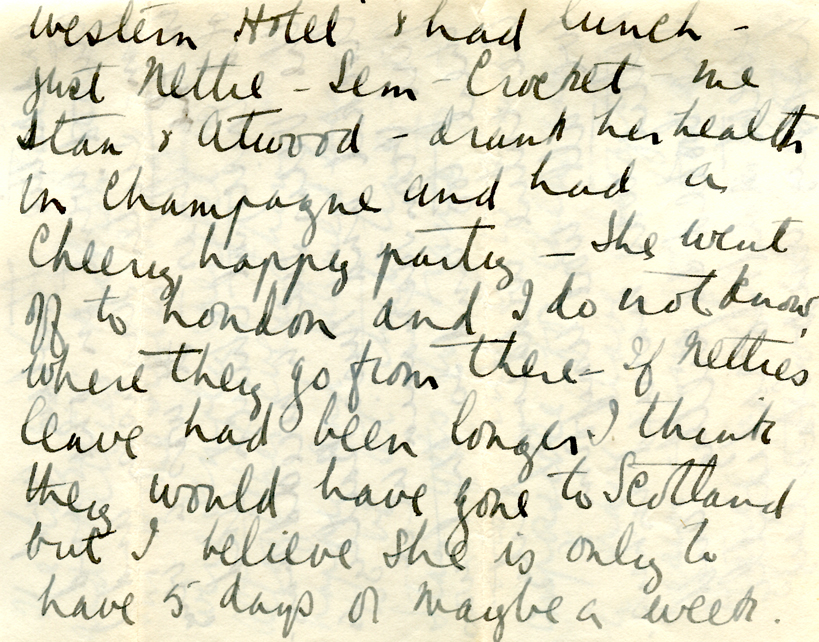 Western Hotel & had lunch -
just Nettie - Sem - Crocket - me
Stan & Atwood - drank her health
in Champagne and had a
Cheery, happy party - She went
off to London and I do not know
where they go from there - If Netties
leave had been longer I think
they would have gone to Scotland
but I believe she is only to
have 5 days or maybe a week.